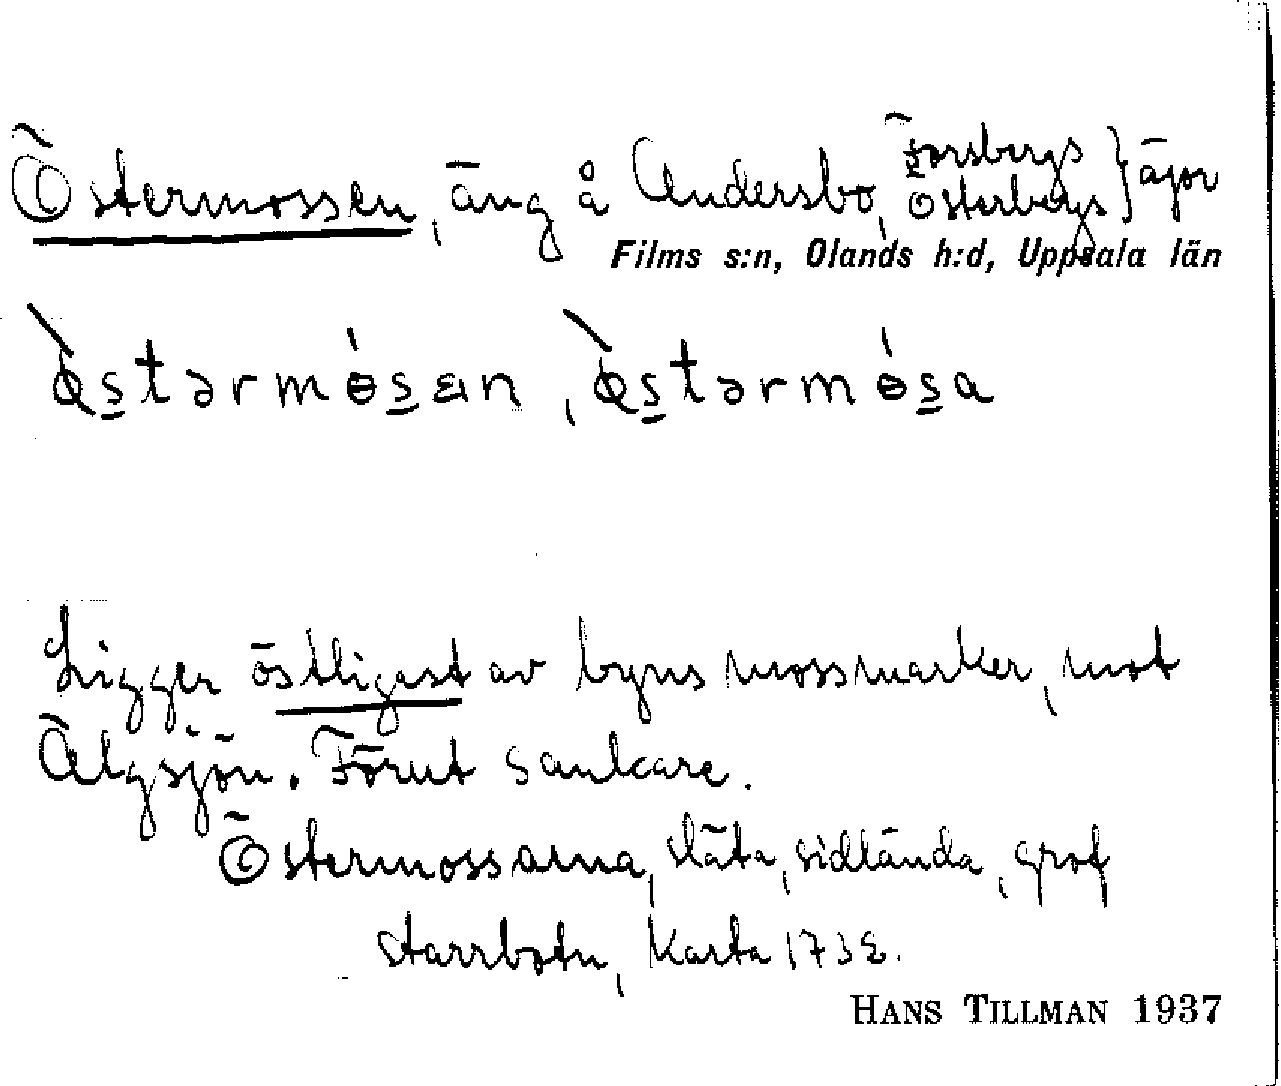 Östermossen, äng å Andersbo, Forsbergs Österbergs } ägor
Films s:n, Olands h:d, Uppsala län
Ligger östligast av byns mossmarker, mot
Älgsjön. Förut sankare.
Östermossarna, släta, sidlända, grof
starrbotn, Karta 1738.
HANS TILLMAN 1937